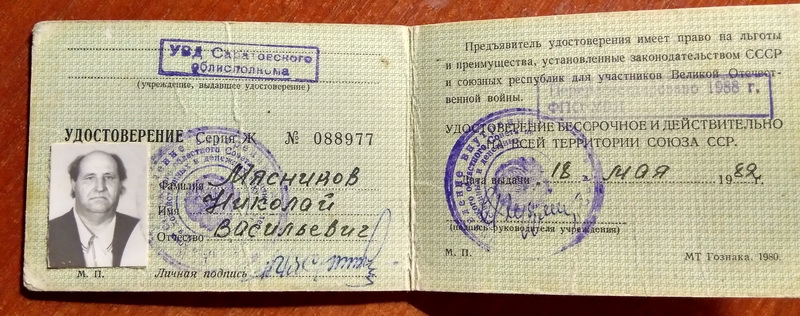 УВД Саратовского
облисполкома
(учреждение, выдавшее удостоверение)
УДОСТОВЕРЕНИЕ Серия Ж № 088977
Фамилия Мясников
Имя Николай
Отчество Васильевич
М. П. Личная подпись
Предъявитель удостоверения имеет право на льготы
и преимущества, установленные законодательством СССР
и союзных республик для участников Великой Отечест-
венной войны.
1988 г.
УДОСТОВЕРЕНИЕ БЕССРОЧНОЕ И ДЕЙСТВИТЕЛЬНО
НА ВСЕЙ ТЕРРИТОРИИ СОЮЗА ССР.
Дата выдачи 18 мая 1982г.
(подпись руководителя учреждения)
М. П. МТ Гознака. 1980.